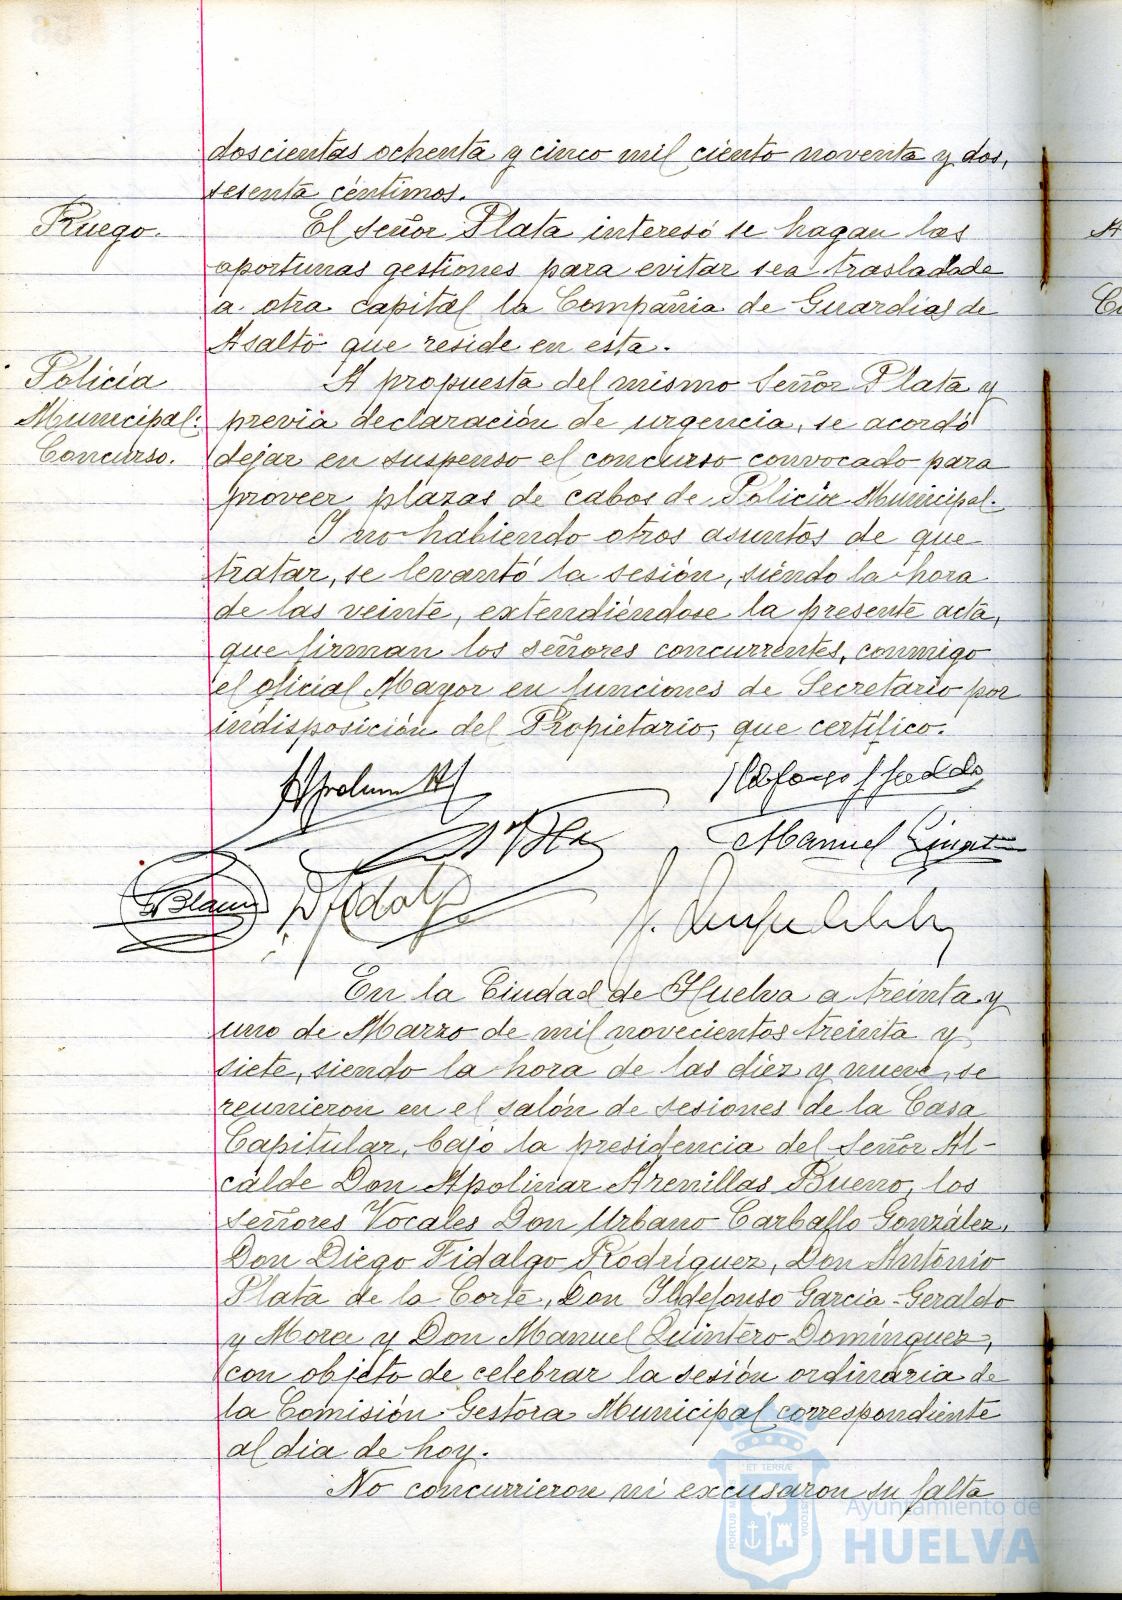 doscientas ochenta y cinco mil ciento noventa y dos,
sesenta céntimos.
Ruego.
El señor Plata interesó se hagan las
oportunas gestiones para evitar sea trasladade
a otra capital la Compañia de Guardias de
Asalto que reside en esta.
Policía
Municipal:
Concurso.
A propuesta del mismo Señor Plata y
previa declaración de urgencia, se acordó
dejar en suspenso el concurso convocado para
proveer plazas de cabos de Policia Municipal.
Y no habiendo otros asuntos de que
tratar, se levantó la sesión, siéndo la hora
de las veinte, extendiéndose la presente acta,
que firman los señores concurrentes, conmigo
el oficial Mayor en funciones de Secretario por
indisposición del Propietario, que certífico.
Manuel
Blanco
En la Ciudad de Huelva a treinta y
uno de Marzo de mil novecientos treinta y
siete, siendo la hora de las diez y nueve, se
reunieron en el salón de sesiones de la Casa
Capitular, bajo la presidencia del Señor Al-
calde Don Apolinar Arenillas Bueno, los
señores Vocales Don Urbano Carballo González,
Don Diego Fidalgo Rodríguez, Don Antonio
Plata de la Corte, Don Ildefonso García-Geraldo
y Mora y Don Manuel Quintero Domínguez,
con objeto de celebrar la sesión ordinaria de
la Comisión Gestora Municipal correspondiente
al dia de hoy.
No concurrieron ni excusaron su falta
Ayuntamiento de
HUELVA